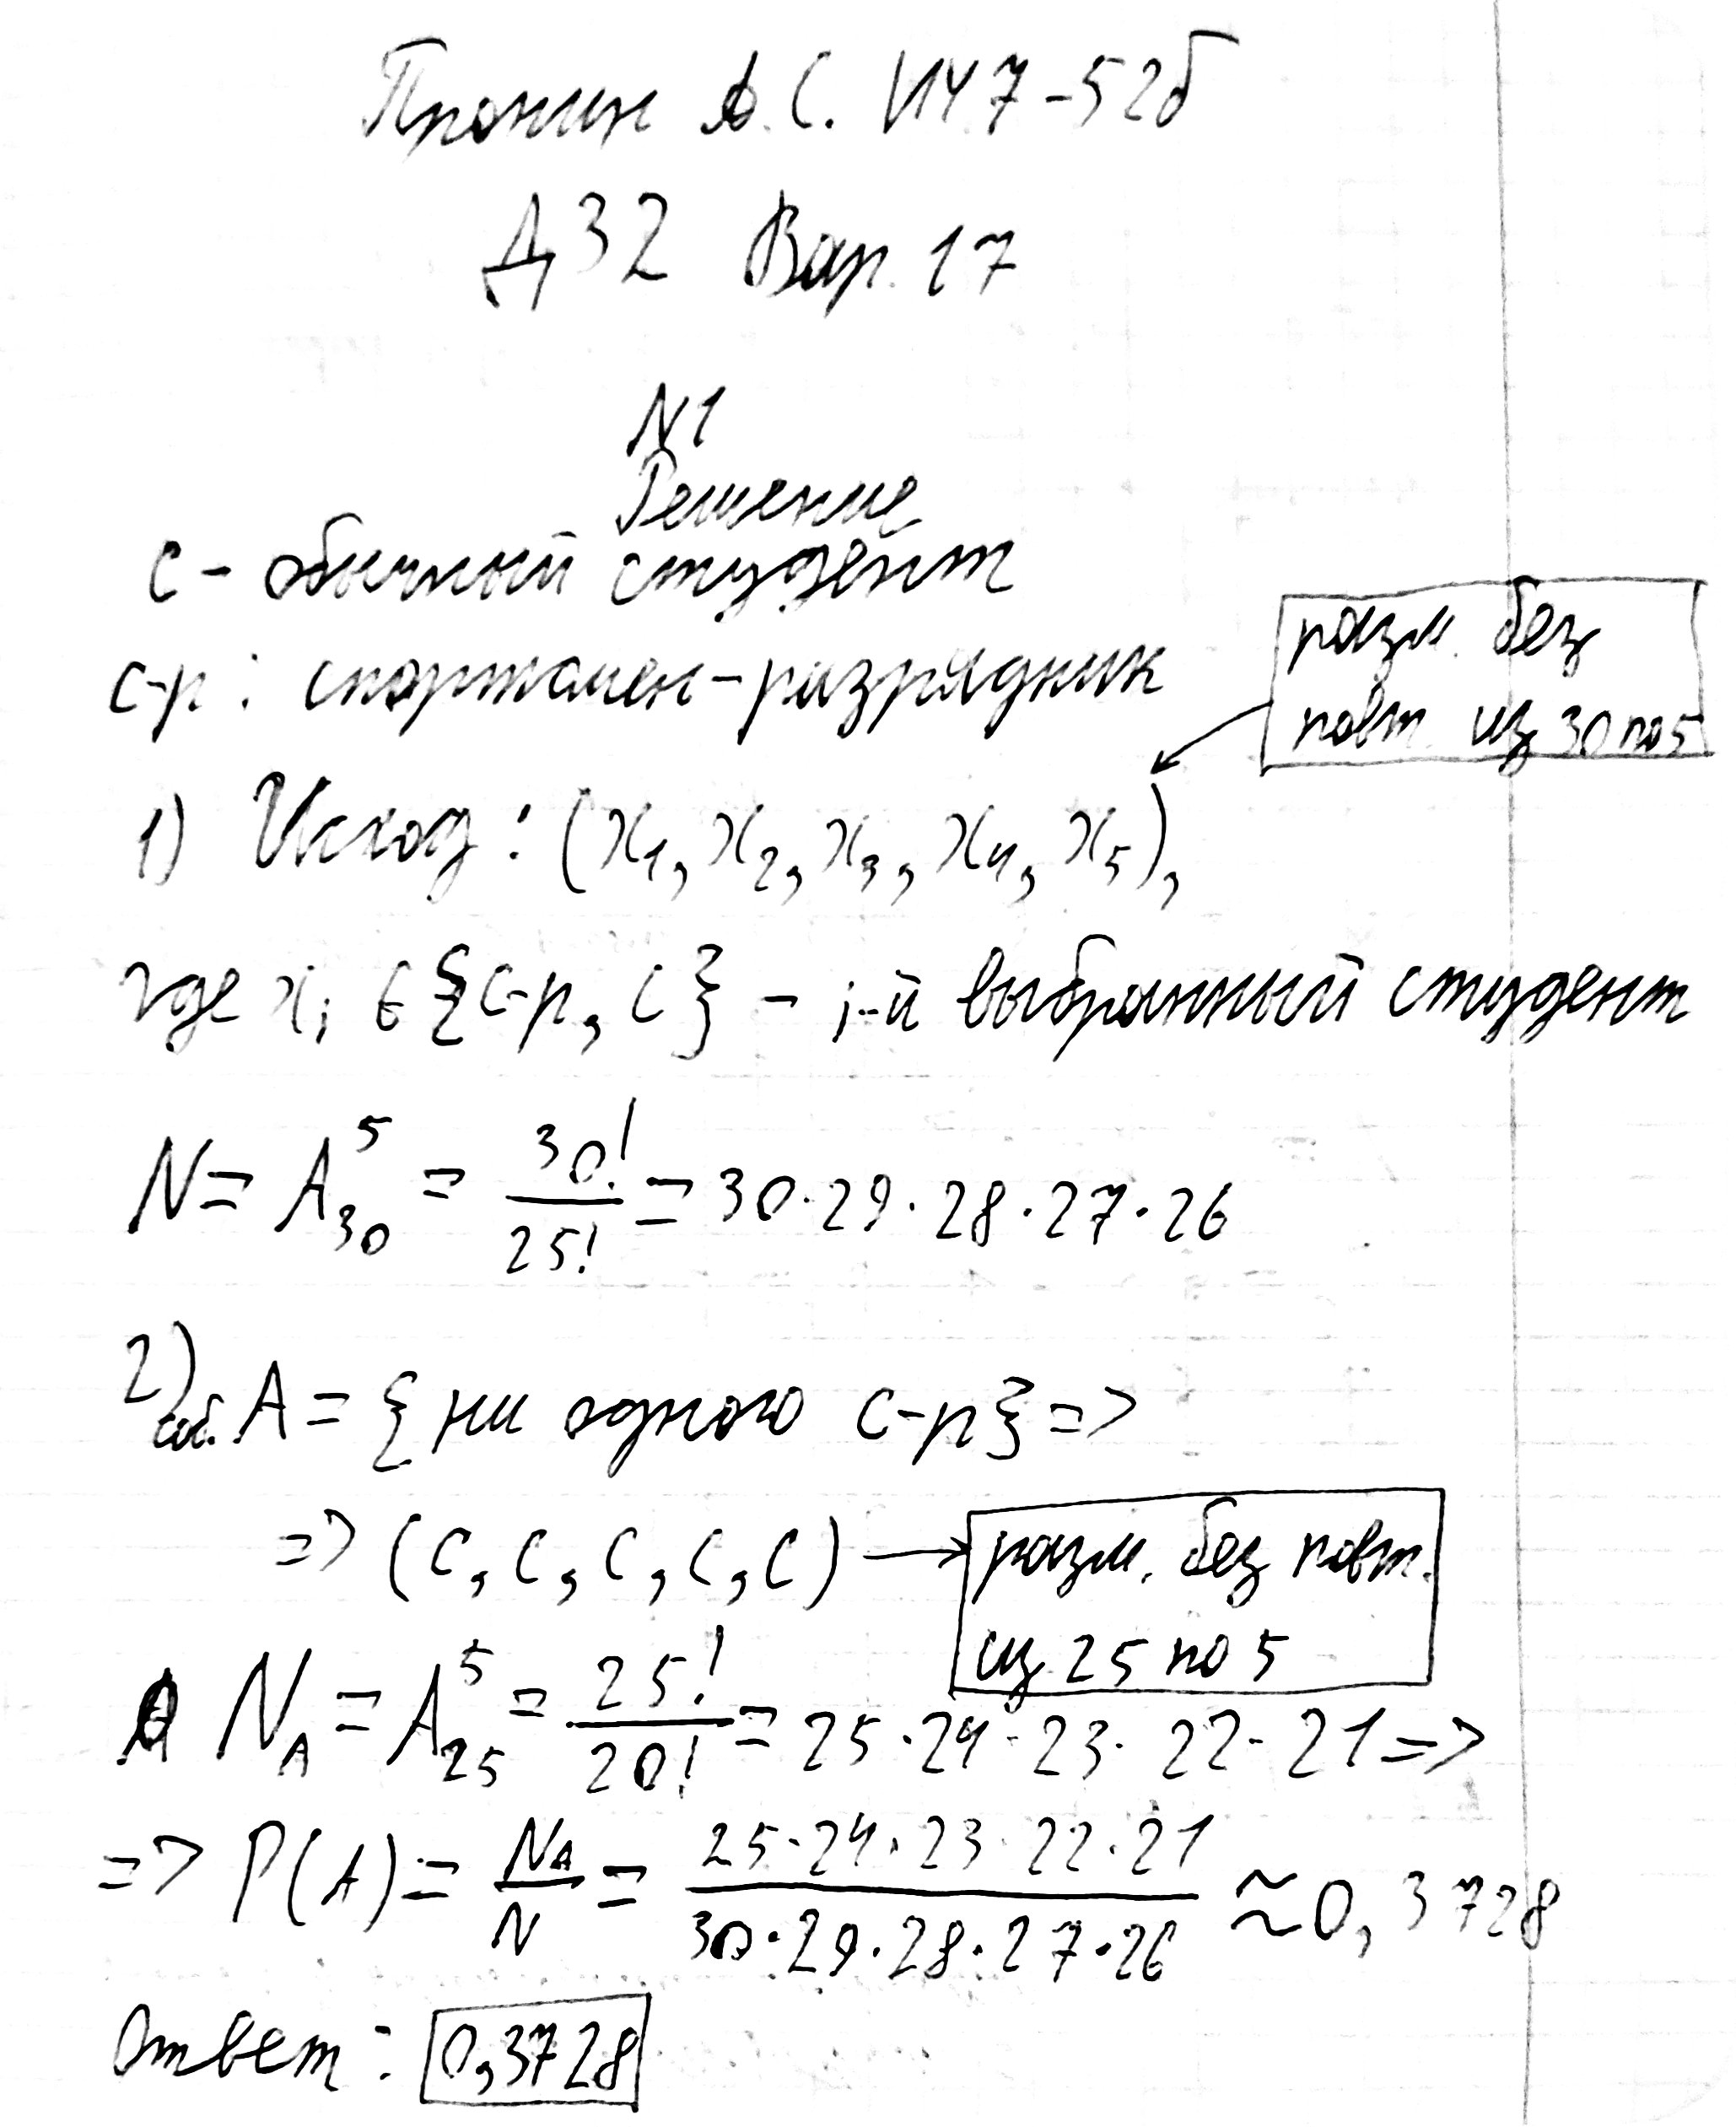 Пронин А.С. ИУ7-52б
ДЗ2 Вар. 17
N1
Решение
с - обычный студент
с-р : спортсмен-разрядник
разм. без
повт. из 30 по 5
1) Исход : (x₁, x₂, x₃, x₄, x₅),
где xᵢ ∈ {с-р, с} - i-й выбранный студент
N = A₃₀⁵ = 30!/25! = 30·29·28·27·26
2) соб. A = { ни одного с-р} =>
=> (с, с, с, с, с) → разм. без повт.
из 25 по 5
N_A = A₂₅⁵ = 25!/20! = 25·24·23·22·21 =>
=> P(A) = N_A/N = 25·24·23·22·21/30·29·28·27·26 ≈ 0,3728
Ответ : 0,3728